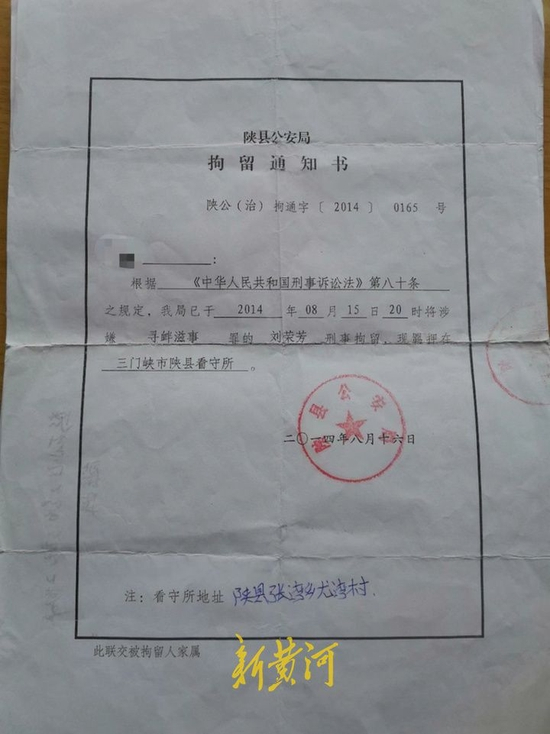 陕县公安局
拘留通知书
陕公（治）拘通字〔2014〕0165 号
：
根据 《中华人民共和国刑事诉讼法》第八十条
之规定，我局已于 2014 年 08 月 15 日 20 时将涉
嫌 寻衅滋事 罪的 刘荣芳 刑事拘留，现羁押在
三门峡市陕县看守所 。
陕县公安局
二〇一四年八月十六日
注：看守所地址 陕县张湾乡尤湾村.
此联交被拘留人家属
新黄河